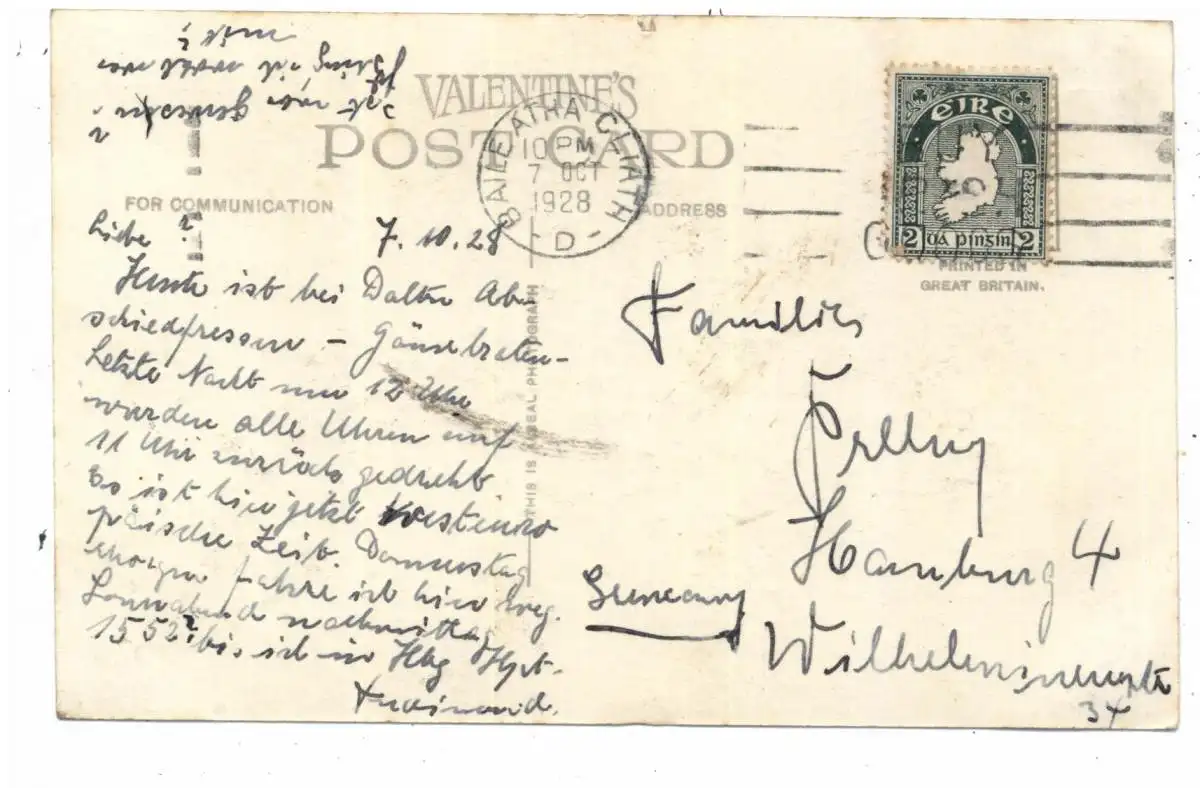 VALENTINE'S
POST CARD
FOR COMMUNICATION
ADDRESS
BAILE ATHA CLIATH
10 PM
7 OCT
1928
D
EIRE
2 DÁ PINSIN 2
PRINTED IN
GREAT BRITAIN.
THIS IS A REAL PHOTOGRAPH
7.10.28
Liebe
Heute ist bei Ab-
schiedfressen – Gänsebraten-
Letzte Nacht um 12 Uhr
wurden alle Uhren auf
11 Uhr zurück gedreht
Es ist hier jetzt Westeuro
päische Zeit. Donnerstag
morgen fahre ich hier weg.
Sonnabend nachmittag
15 52 bin ich in Hbg Hpt-
Ferdinand.
Familie
Hamburg 4
Germany
34